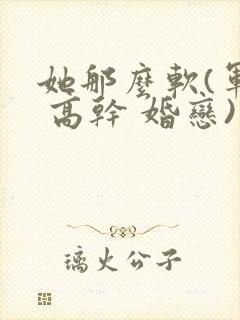 她那麼軟(軍
高幹 婚戀)
璃火公子